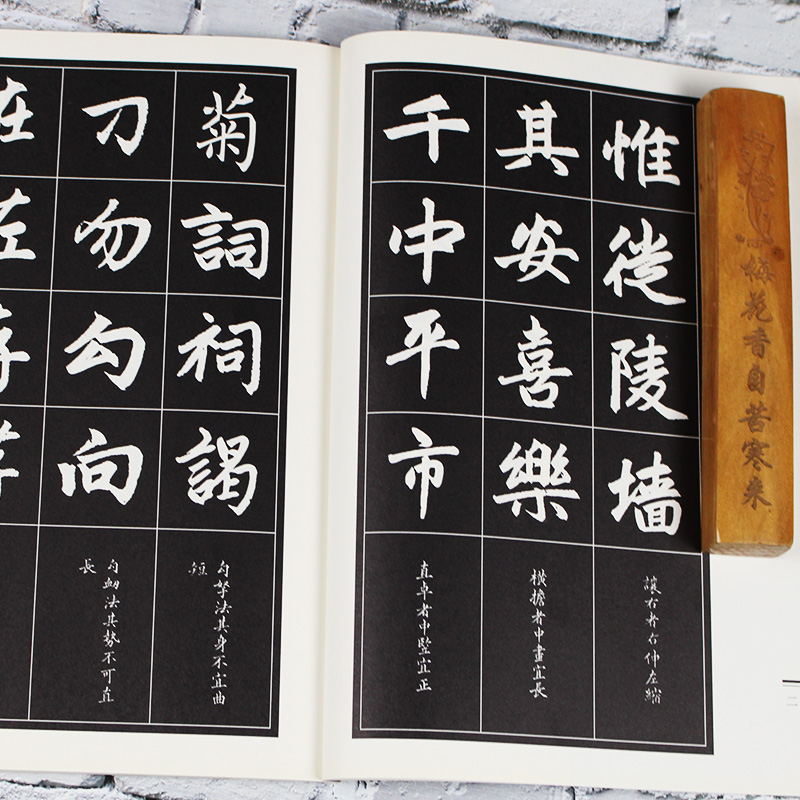 惟従陵墙
讓右者右伸左縮
其安喜樂
橫擔者中畫宜長
千中平市
直卓者中竪宜正
菊詞祠謁
勾拏法其身不宜曲
短
刀勿勾向
勾衂法其勢不可直
長
在左存
梅花香自苦寒来